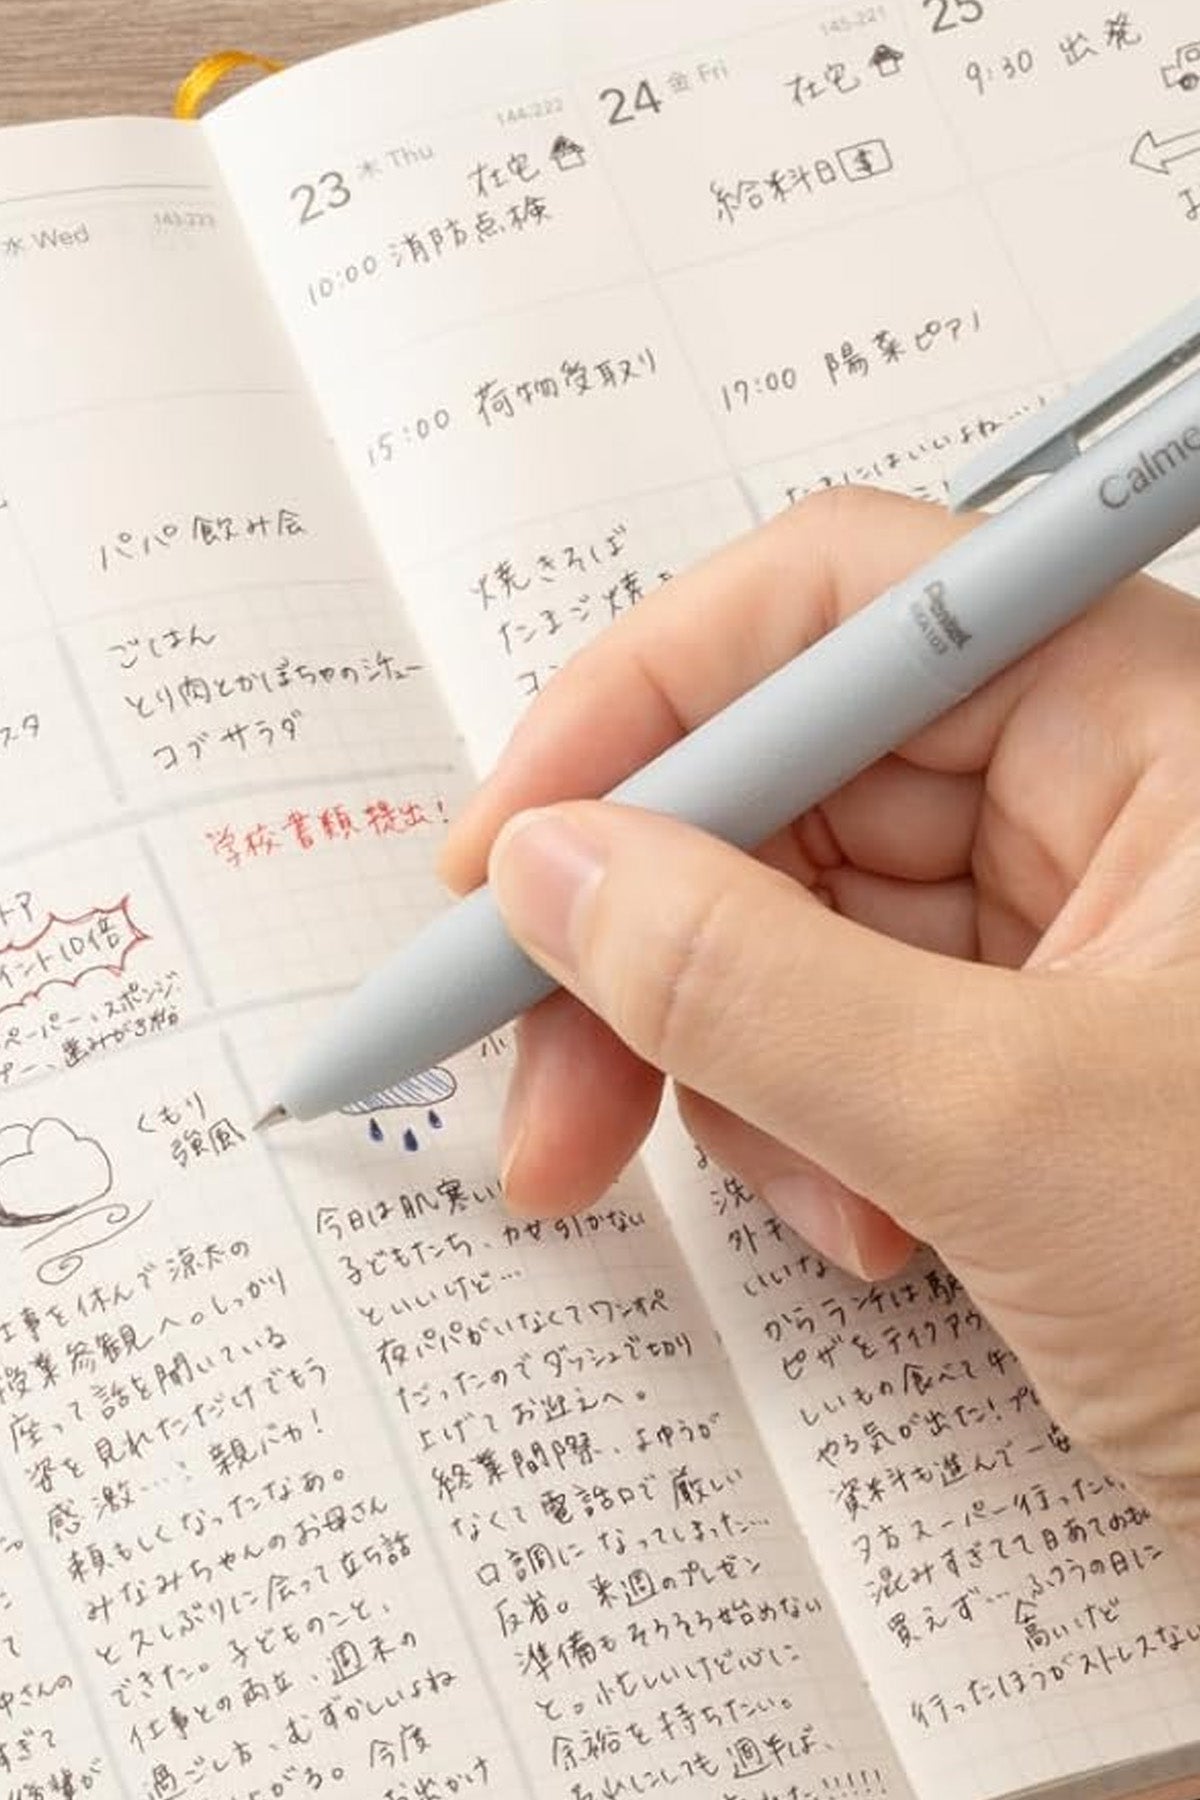 水 Wed
143-222
パパ飲み会
ごはん
とり肉とかぼちゃのシチュー
コブサラダ
学校書類提出!
イント10倍
ペーパー、スポンジ
歯みがき粉
くもり
強風
仕事を休んで涼太の
授業参観へ。しっかり
座って話を聞いている
姿を見れただけでもう
感激…! 親バカ!
頼もしくなったなあ。
みなみちゃんのお母さん
と久しぶりに会って立ち話
できた。子どものこと、
仕事との両立、週末の
過ごし方、むずかしいよね
がる。今度
お出かけ
23 木 Thu
144-222
在宅
10:00 消防点検
15:00 荷物受取り
焼きそば
たまご焼き
今日は肌寒い
子どもたち、カゼ引かない
といいけど…
夜パパがいなくてワンオペ
だったのでダッシュで切り
上げてお迎えへ。
終業間際、よゆうが
なくて電話口で厳しい
口調になってしまった…
反省。来週のプレゼン
準備もそろそろ始めない
と。忙しいけど心に
余裕を持ちたい。
週半ば、
24 金 Fri
145-221
在宅
給料日
17:00 陽菜ピアノ
たまにはいいよね…
洗
いいな
からランチは駅
ピザをテイクアウ
しいもの食べて午
やる気が出た!プレ
資料も進んで一安
夕方スーパー行ったい
混みすぎてて目あてのも
買えず…ふつうの日に
高いけど
行ったほうがストレスない
25
9:30 出発
Calme
Pentel